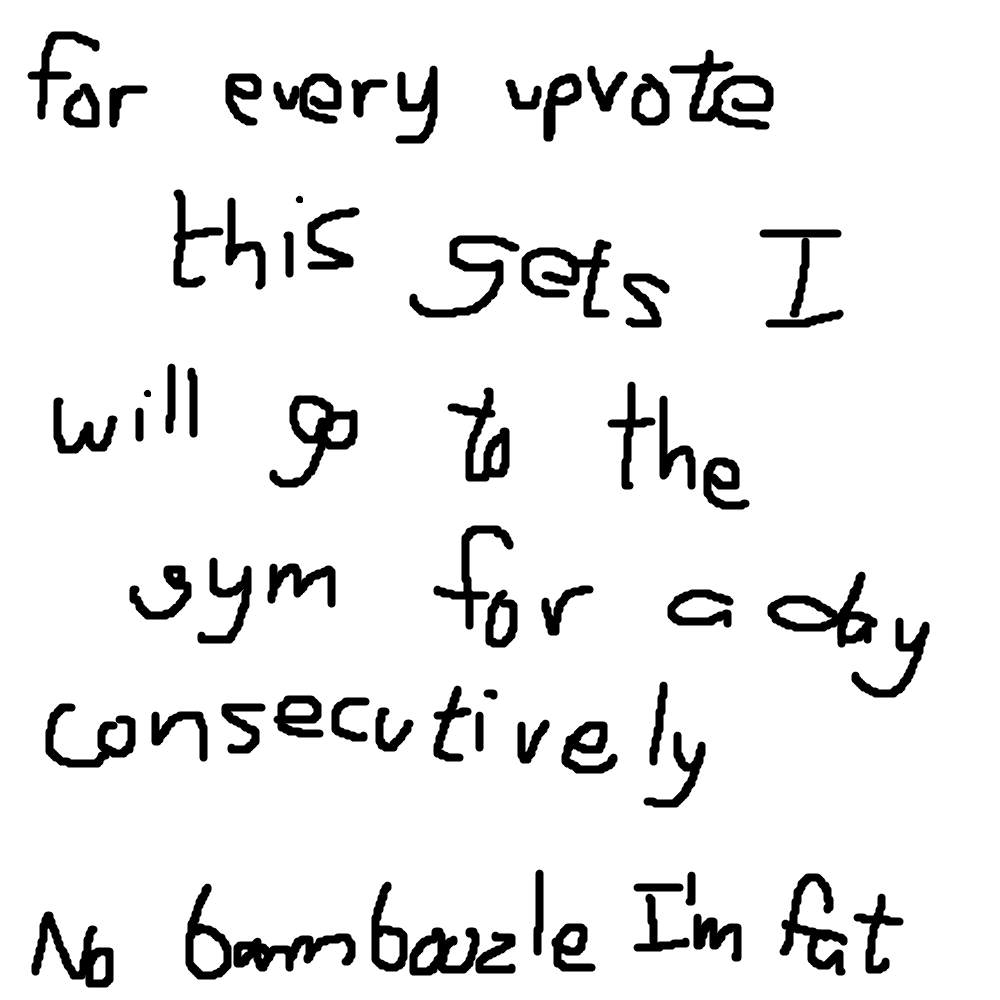 for every upvote
this gets I
will go to the
gym for a day
consecutively
No bamboozle I'm fat